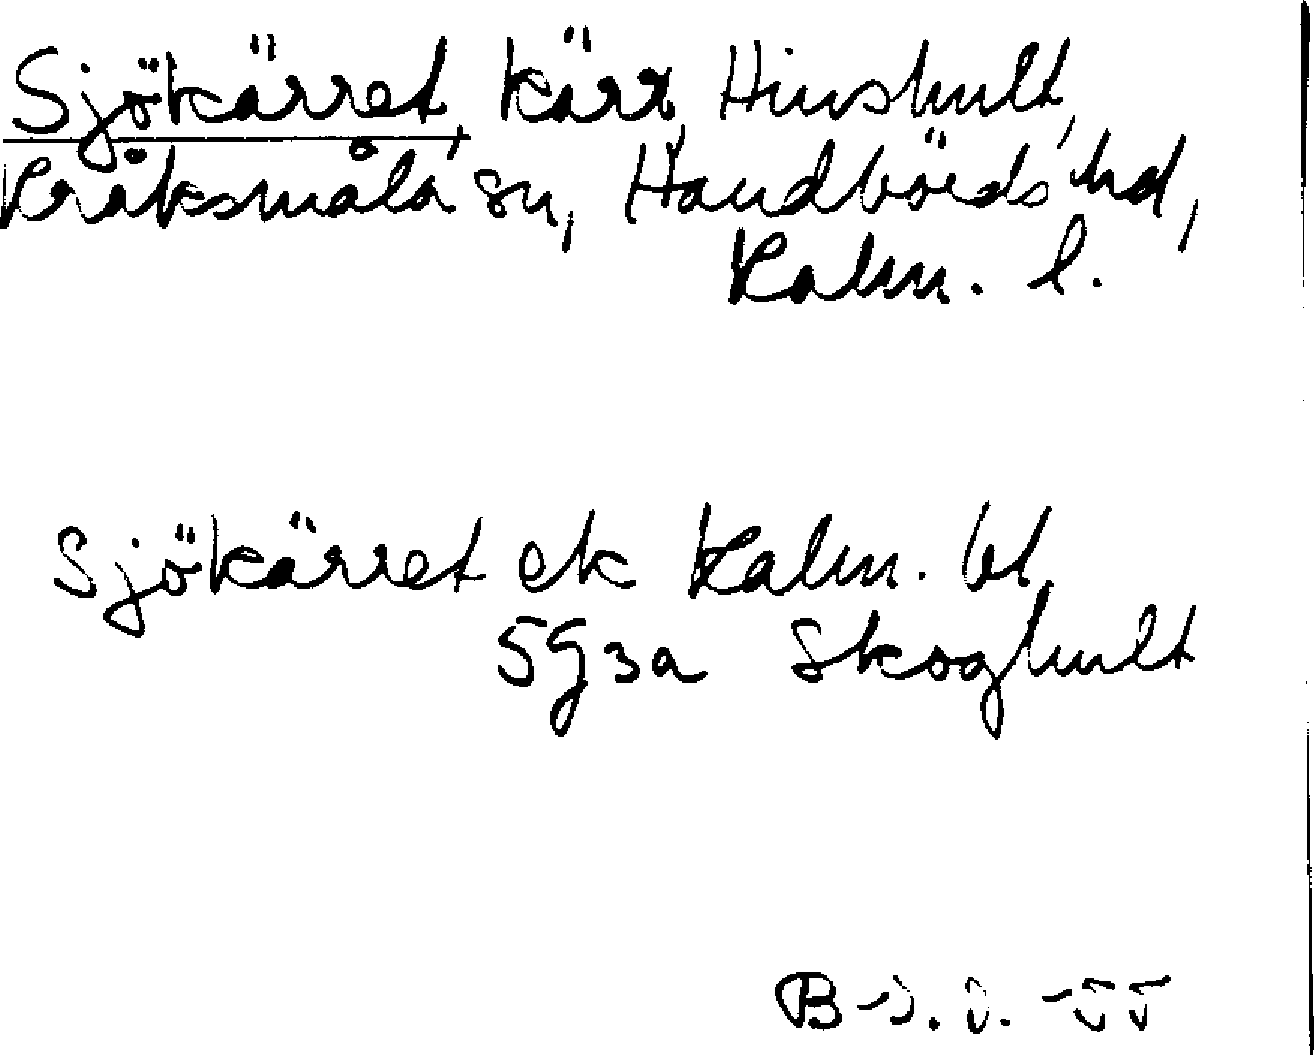 Sjökärret, kärr, Hinshult,
Kråksmåla sn, Handbörds hd,
Kalm. l.
Sjökärret ek Kalm. bl.
5g3a Skoghult